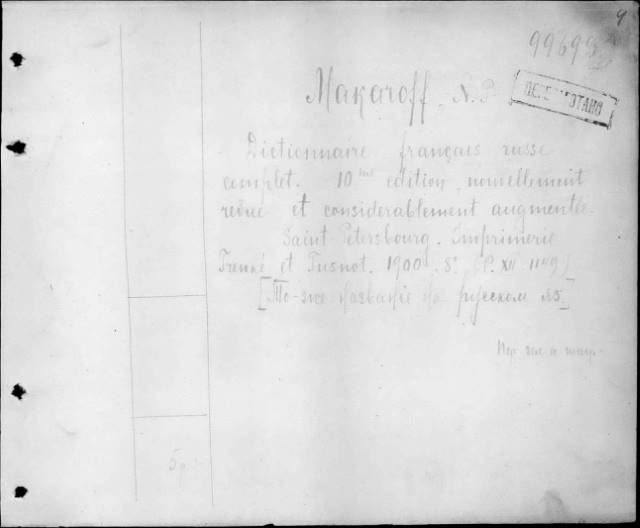 9
99699
Makaroff, N. P.
Dictionnaire français russe
complet. 10me edition, nouvellement
revue et considerablement augmentée.
Saint-Pétersbourg. Imprimerie
Trenké et Fusnot. 1900. 8°. (P. XII 1149)
[То-же название на русском яз.]
5 р.